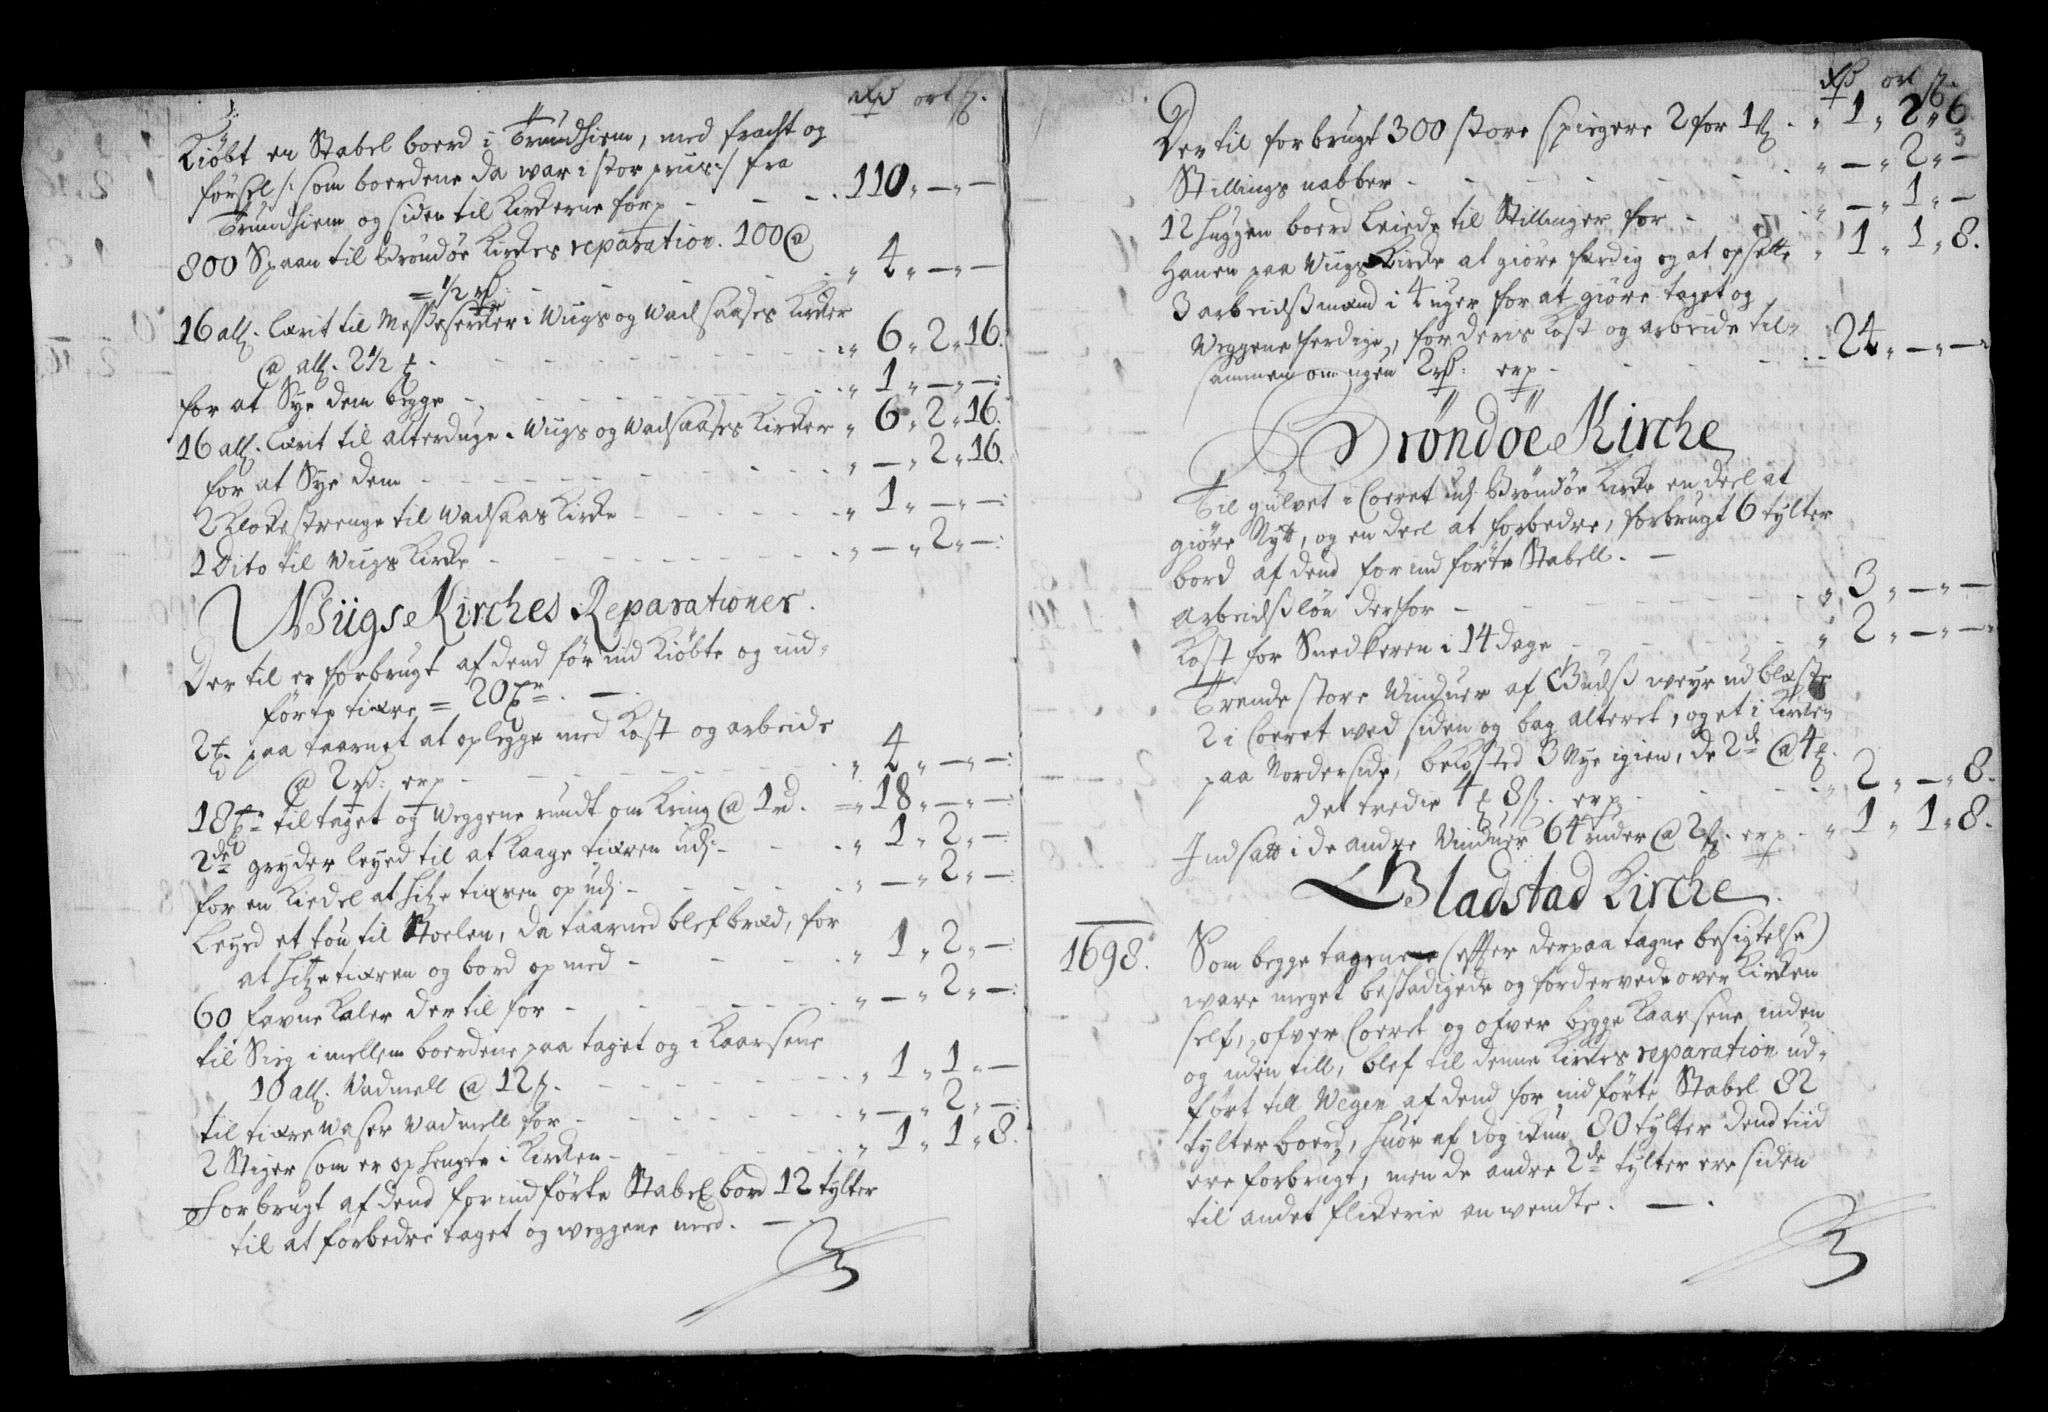 rd ort ß.
Kiöbt en Stabel boerd i Trundhiem, med fracht og
försel /: som boerdene da war i stor priis :/ fra
Trundhiem og siden til Kirkerne for - - - 110 „ — „ —
800 Spaan til Bröndöe Kirkes reparation. 100 @
= 1/2 rd: - - - „ 4 „ — „ —
16 all. Lærit til Messeserker i Wiigs og Wadsaases Kirker
@ all. 2 1/2 - - - „ 6 „ 2 „ 16.
for at Sye dem begge - - - „ 1 „ — „ —:
16 all. Lærit til alterduge i Wiigs og Wadsaases Kirker „ 6 „ 2 „ 16.
for at Sye dem - - - „ — „ 2 „ 16.
2 Klokestrenge til Wadsaas Kirke - - - „ 1 „ — „ —:
1 Dito til Wiigs Kirke - - - „ — „ 2 „ —:
Wiigs Kirches Reparationer.
Der til er forbrugt af dend för ind Kiöbte og ind-
förte tiære = 20 Tr. —.
2 T. paa taarnet at oplegge med Kost og arbeide
@ 2 rd: er - - - „ 4 „ — „ —:
18 Tr til taget og Weggene rundt om Kring @ 1 rd. = „ 18 „ — „ —:
2de gryder leyed til at Kaage tiæren udj - - - „ 1 „ 2 „ —
for en Kiedel at hitze tiæren op udj - - - „ — „ 2 „ —:
Leyed et tou til Stoelen, da taarned blef bræd, for
at hitze tiæren og bord op med - - - „ 1 „ 2 „ —:
60 favne Kaler der til for - - - „ — „ 2 „ —:
til Sieg imellem boerdene paa taget og i Kaarsene
10 all. Vadmell @ 12 ß. - - - „ 1 „ 1 „ —
til tiære Waser Vadmell for - - - „ — „ 2 „ —:
2 Stiger som er ophengte i Kirken - - - „ 1 „ 1 „ 8.
Forbrugt af dend for indförte Stabel bord 12 tylter
til at forbedre taget og weggene med. —
rd ort ß.
Der til forbrugt 300 store spiigere 2 for 1 ß - „ 1 „ 2 „ 6
3
Stillings nabber - - - „ — „ 2 „ —
12 huggen boerd Leiede til Stillinger for - - „ — „ 1 „ —
Hanen paa Wiigs Kirke at giöre færdig og at opsette „ 1 „ 1 „ 8.
3 arbeidsmænd i 4 uger for at giöre taget og
Weggene ferdige, for deris Kost og arbeide til-
sammen om ugen 2 rd: er - - - 24 „ — „ —:
Bröndöe Kirche
Til gulvet i Coeret udj Bröndöe Kirke en deel at
giöre Nytt, og en deel at forbedre, forbrugt 6 tylter
bord af dend for ind förte Stabell. —
Arbeidslön derfor - - - „ 3 „ — „ —
Kost for Snedkeren i 14 dage - - - „ 2 „ — „ —:
Trende store Vinduer af Guds weyr udblæste
2 i Coeret wed siden og bag alteret, og et i Kirken
paa Norderside, bekosted 3 Nye igien, de 2de @ 4
det tredie 4 8 ß. er - - - „ 2 „ — „ 8.
Indsatt i de andre Vinduer 64 ruder @ 2 ß. er - „ 1 „ 1 „ 8.
Bladstad Kirche.
1698. Som begge tagene (effter derpaa tagne besigtelse)
ware meget beskadigede og fordervede over Kirken
self, ofver Coeret og ofver begge Kaarsene inden
og uden till, blef til denne Kirkes reparation ud-
fört till Wegen af dend for indförte Stabel 82
tylter boerd, huor af dog ikun 80 tylter dend tiid
ere forbrugt, men de andre 2de tylter ere siden
til andet flikerie anwendte. —